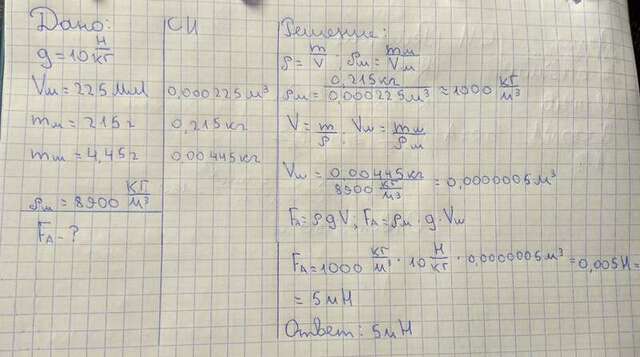 Дано:
g = 10 Н/кг
Vм = 225 мл
mм = 215 г
mш = 4,45 г
ρм = 8900 кг/м³
FА - ?
СИ
0,000225 м³
0,215 кг
0,00445 кг
Решение:
ρ = m/V ; ρм = mм/Vм
ρм = 0,215 кг/0,000225 м³ ≈ 1000 кг/м³
V = m/ρ ; Vш = mш/ρм
Vш = 0,00445 кг/8900 кг/м³ = 0,0000005 м³
FА = ρgV ; FА = ρм · g · Vш
FА = 1000 кг/м³ · 10 Н/кг · 0,0000005 м³ = 0,005 Н =
= 5 мН
Ответ: 5 мН